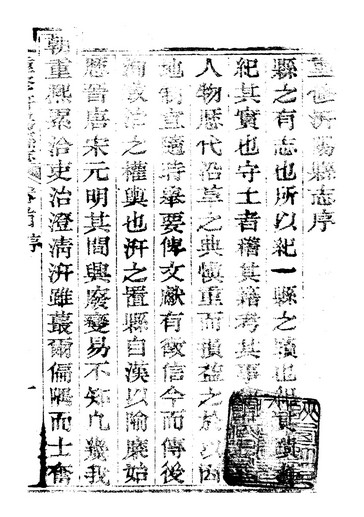 重修汧陽縣志序
縣之有志也所以紀一縣之蹟也
紀其實也守土者稽其籍考其事
人物歷代沿革之典慎重而損益之於以因
地制宜隨時舉要俾文獻有徵信今而傳後
洵政治之權輿也汧之置縣自漢以隃麋始
歷晉唐宋元明其間興廢變易不知凡幾我
朝重熙累洽吏治澄清汧雖蕞爾偏隅而士奮
重修汧陽縣志 卷首 序 一